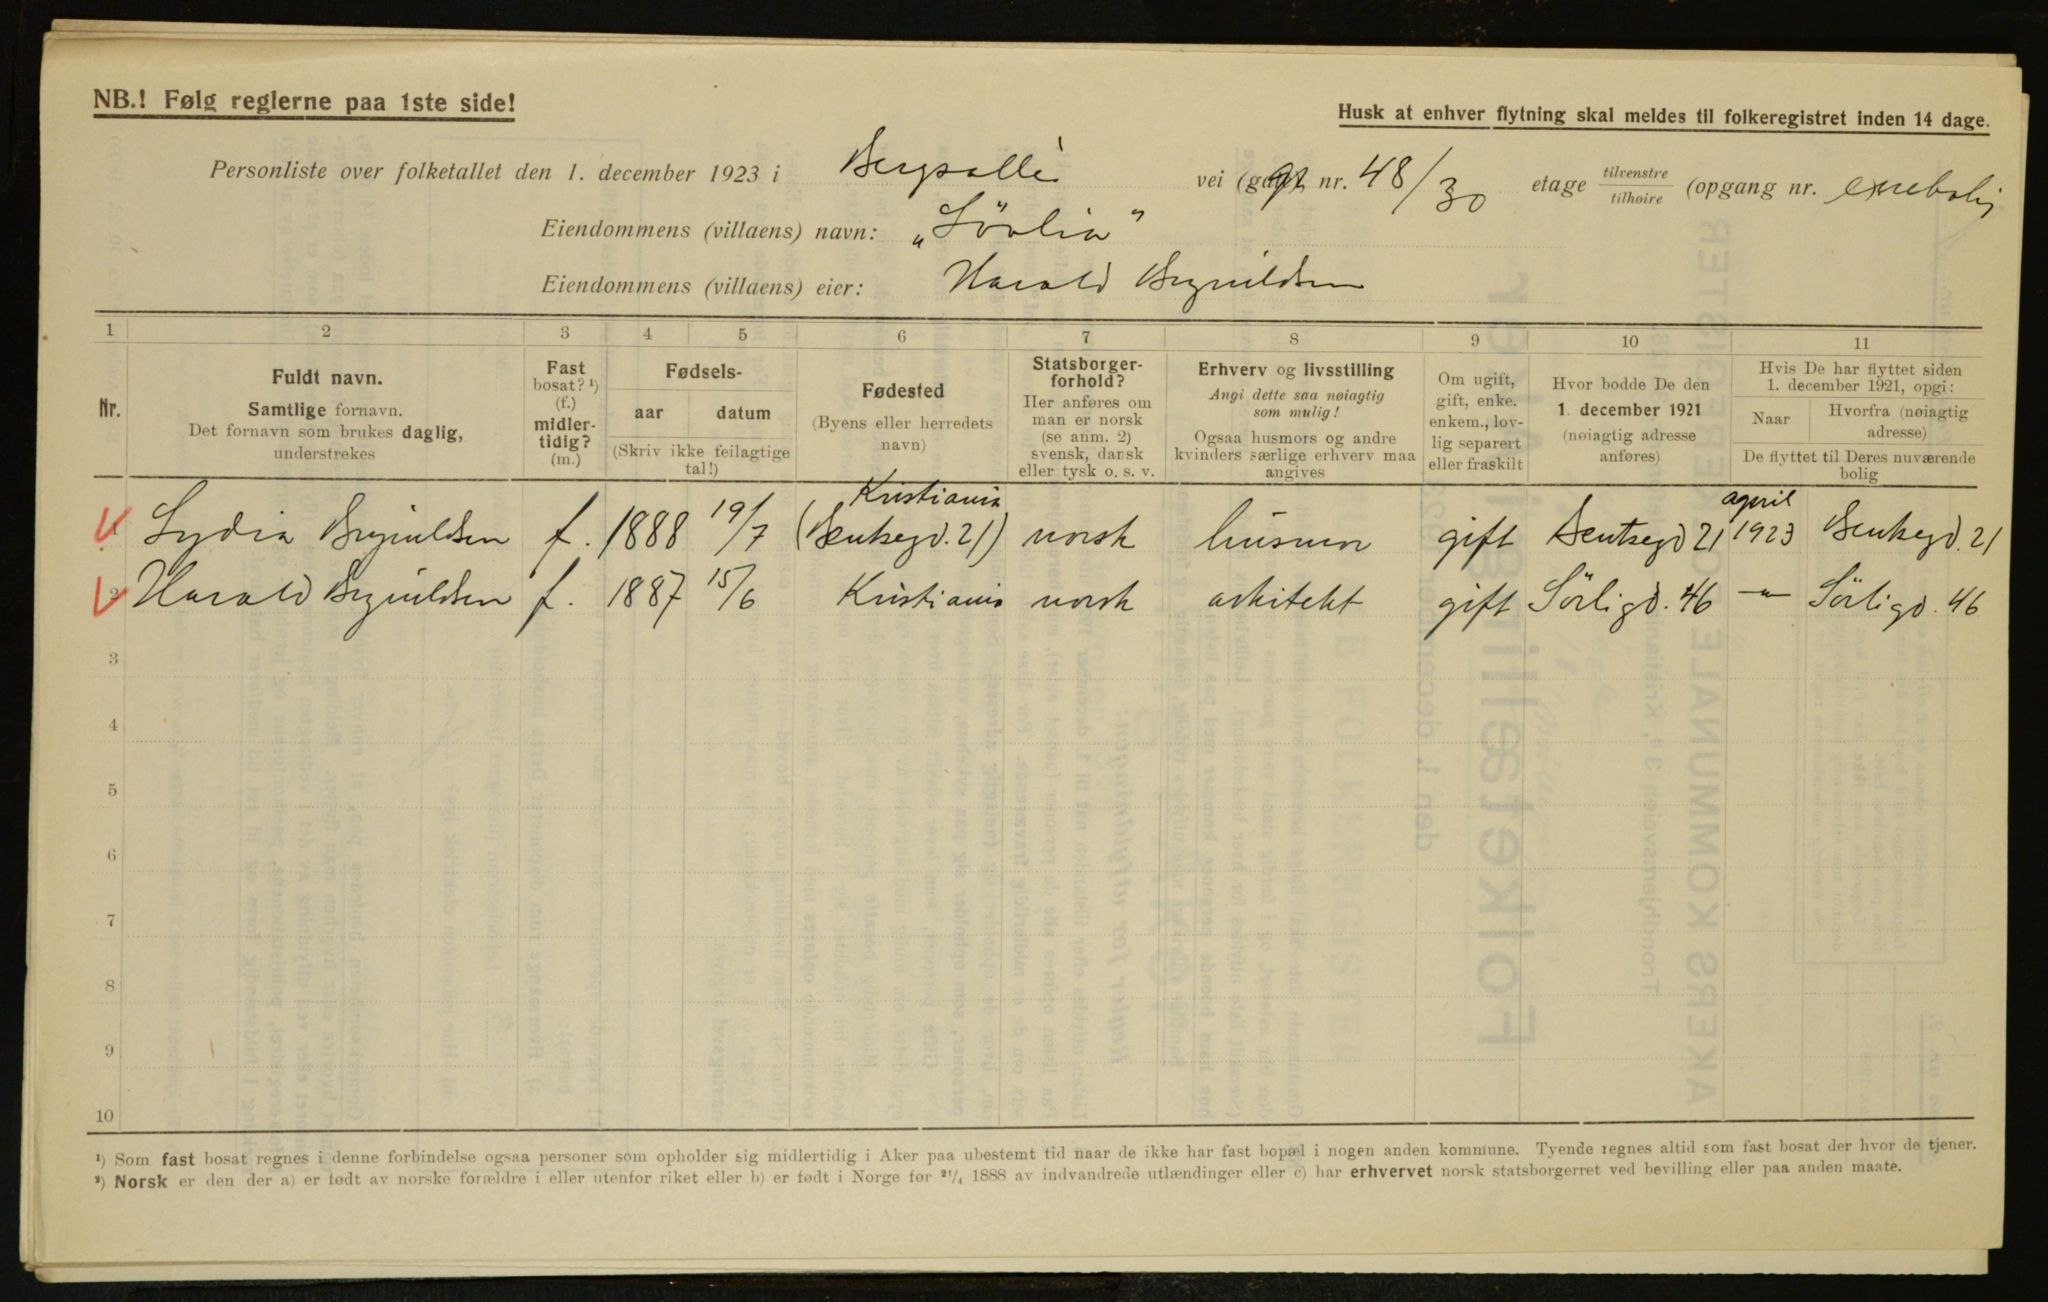 NB.! Følg reglerne paa 1ste side!
Husk at enhver flytning skal meldes til folkeregistret inden 14 dage.
Personliste over folketallet den 1. december 1923 i Bergsallé vei nr. 48/30 etage tilvenstre tilhøire (opgang nr. enebolig
Eiendommens (villaens) navn: „Sörlia"
Eiendommens (villaens) eier: Harald Brynildsen
1 2 3 4 5 6 7 8 9 10 11
Nr.
Fuldt navn.
Samtlige fornavn.
Det fornavn som brukes daglig,
understrekes
Fast
bosat? ¹)
(f.)
midler-
tidig?
(m.)
Fødsels-
aar datum
(Skriv ikke feilagtige
tal!)
Fødested
(Byens eller herredets
navn)
Statsborger-
forhold?
Her anføres om
man er norsk
(se anm. 2)
svensk, dansk
eller tysk o. s. v.
Erhverv og livsstilling
Angi dette saa nøiagtig
som mulig!
Ogsaa husmors og andre
kvinders særlige erhverv maa
angives
Om ugift,
gift, enke.
enkem., lov-
lig separert
eller fraskilt
Hvor bodde De den
1. december 1921
(nøiagtig adresse
anføres)
Hvis De har flyttet siden
1. december 1921, opgi:
Naar Hvorfra (nøiagtig
adresse)
De flyttet til Deres nuværende
bolig
Kristiania april
1 Lydia Brynildsen f. 1888 19/7 (Bentsegd. 21) norsk husmor gift Bentsegd 21 1923 Bentsegd. 21
2 Harald Brynildsen f. 1887 15/6 Kristiania norsk arkitekt gift Sörligd. 46 —"— Sörligd. 46
3
4
5
6
7
8
9
10
¹) Som fast bosat regnes i denne forbindelse ogsaa personer som opholder sig midlertidig i Aker paa ubestemt tid naar de ikke har fast bopæl i nogen anden kommune. Tyende regnes altid som fast bosat der hvor de tjener.
²) Norsk er den der a) er født av norske forældre i eller utenfor riket eller b) er født i Norge før ²¹/₄ 1888 av indvandrede utlændinger eller c) har erhvervet norsk statsborgerret ved bevilling eller paa anden maate.